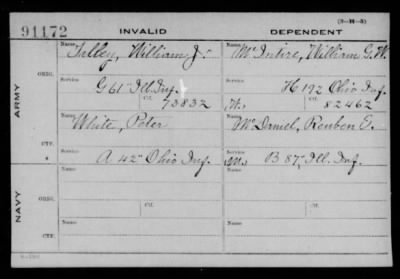 (3-M-5)
91172 INVALID DEPENDENT
Name Talley, William J. Name McIntire, William G. W.
ARMY
ORIG.
Service Service
G 61" Ill. Inf. H 192 Ohio Inf.
Ctf. 73832 W. Ctf. 82462
Name White, Peter Name McDaniel, Reuben E.
CTF.
Service Service
A 42" Ohio Inf. M. B 87" Ill. Inf.
NAVY
ORIG.
Name Name
Ctf. Ctf.
CTF.
Name Name